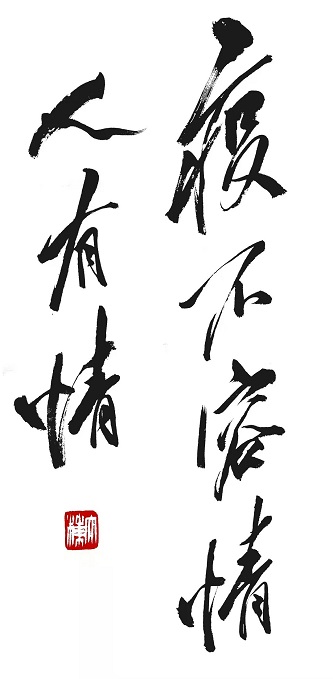 疫不容情
人有情